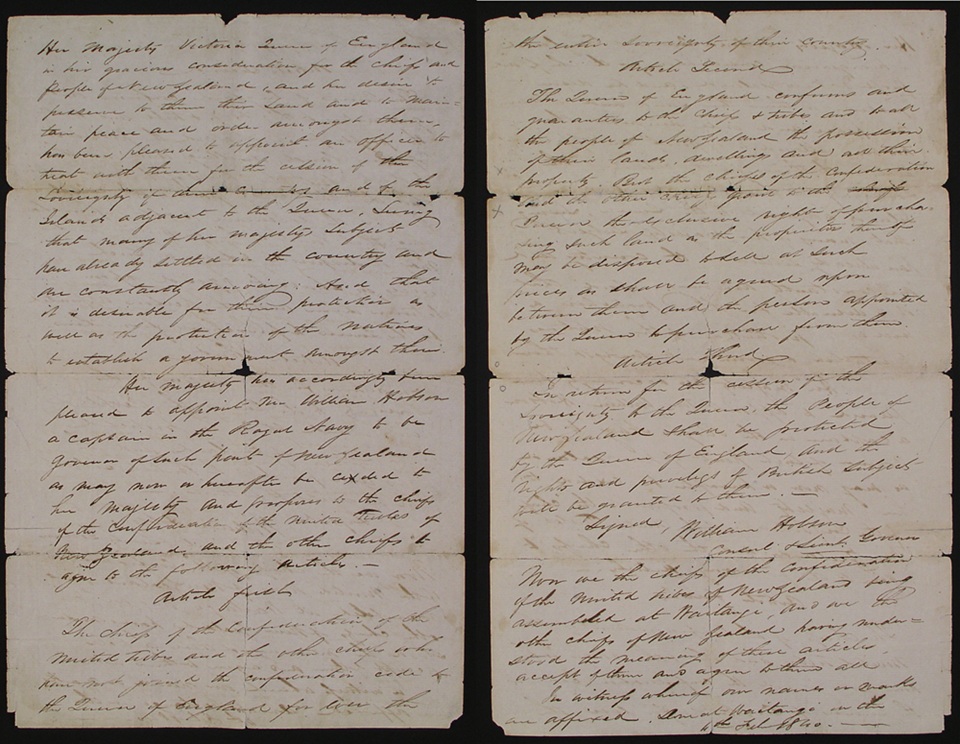 Her Majesty Victoria Queen of England
in her gracious consideration for the chiefs and
People of New Zealand, and her desire to
preserve to them their Land and to main-
tain peace and order amongst them,
has been pleased to appoint an officer to
treat with them for the cession of the
Sovreignty of their and of the
Islands adjacent to the Queen. Seeing
that many of her Majesty Subjects
have already settled in the country and
are constantly arriving: And that
it is desirable for their protection as
well as the protection of the natives
to establish a government amongst them.
Her Majesty has accordingly been
pleased to appoint Mr William Hobson
a captain in the Royal Navy to be
Governor of such parts of New Zealand
as may now or hereafter be ceded to
her Majesty and proposes to the chiefs
of the Confederation of the United Tribes of
New Zealand and the other chiefs to
agree to the following Articles.—
Article first
The chiefs of the Confederation of the
United tribes and the other chiefs who
have not joined the confederation cede to
the Queen of England for ever the
the entire Sovreignty of their country.
Article Second
The Queen of England confirms and
guarantees to the Chiefs & tribes and to all
the people of New Zealand the possession
of their lands, dwellings and all their
property. But the chiefs of the Confederation
and the other chiefs grant to the
Queen the exclusive right of purcha-
sing such land as the proprietors thereof
may be disposed to sell at such
prices as shall be agreed upon
between them and the persons appointed
by the Queen to purchase from them.
Article Third
In return for the cession of the
Sovreignty to the Queen, the People of
New Zealand shall be protected
by the Queen of England and the
rights and privileges of British subjects
will be granted to them.—
Signed William Hobson
Consul & Lieut. Governor
Now we the chiefs of the Confederation
of the United tribes of New Zealand being
assembled at Waitangi, and we the
other chiefs of New Zealand having under=
stood the meaning of these articles,
accept of them and agree to them all
In witness whereof our names or marks
are affixed. Done at Waitangi on the
4th Feb. 1840.—